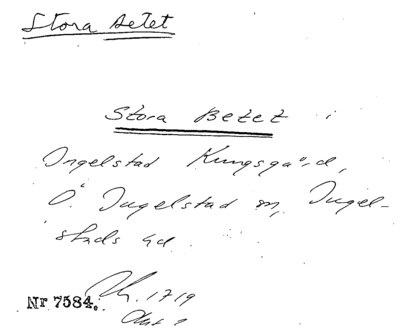 Stora Betet
Stora Betet i
Ingelstad Kungsgård,
Ö. Ingelstad sn, Ingel-
stads hd
1719
Nr 7584.